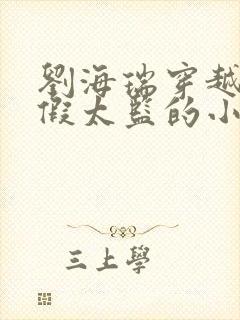 劉海瑞穿越
假太監的小
三上學